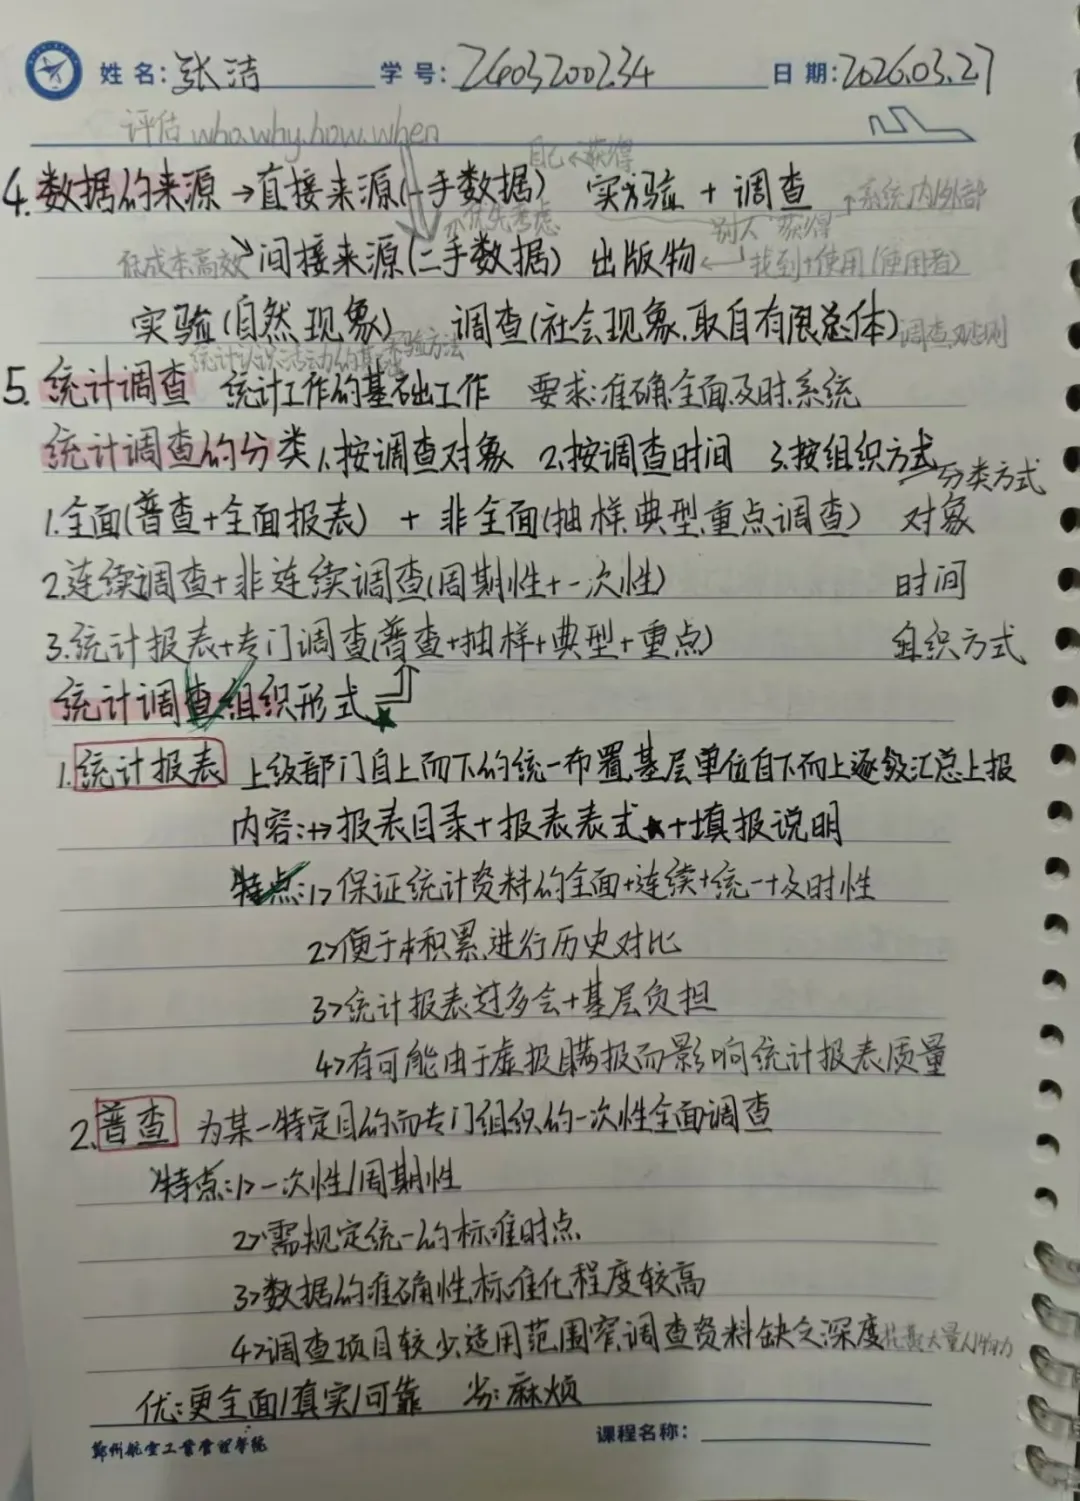 姓名:张洁 学号:2403200234 日期:2026.03.27
评估 who.why.how.when
自己←获得
4.数据的来源→直接来源(一手数据) 实验+调查 ↑系统内/外部
优先考虑 别人 获得
低成本高效 间接来源(二手数据) 出版物 ← 找到+使用(使用者)
实验(自然现象) 调查(社会现象.取自有限总体) 调查.观测
统计认识活动的基
5.统计调查 统计工作的基础工作 要求:准确.全面.及时.系统
统计调查的分类 1.按调查对象 2.按调查时间 3.按组织方式 分类方式
1.全面(普查+全面报表) + 非全面(抽样.典型.重点调查) 对象
2.连续调查+非连续调查(周期性+一次性) 时间
3.统计报表+专门调查(普查+抽样+典型+重点) 组织方式
统计调查组织形式
1.统计报表 上级部门自上而下的统一布置.基层单位自下而上逐级汇总上报
内容:→报表目录+报表表式+填报说明
特点:1>保证统计资料的全面+连续+统一+及时性
2>便于积累.进行历史对比
3>统计报表过多会+基层负担
4>有可能由于虚报.瞒报而影响统计报表质量
2.普查 为某一特定目的而专门组织的一次性全面调查
特点:1>一次性/周期性
2>需规定统一的标准时点
3>数据的准确性.标准化程度较高
4>调查项目较少.适用范围窄.调查资料缺乏深度 耗费大量人物力
优:更全面/真实/可靠 劣:麻烦
郑州航空工业管理学院 课程名称: